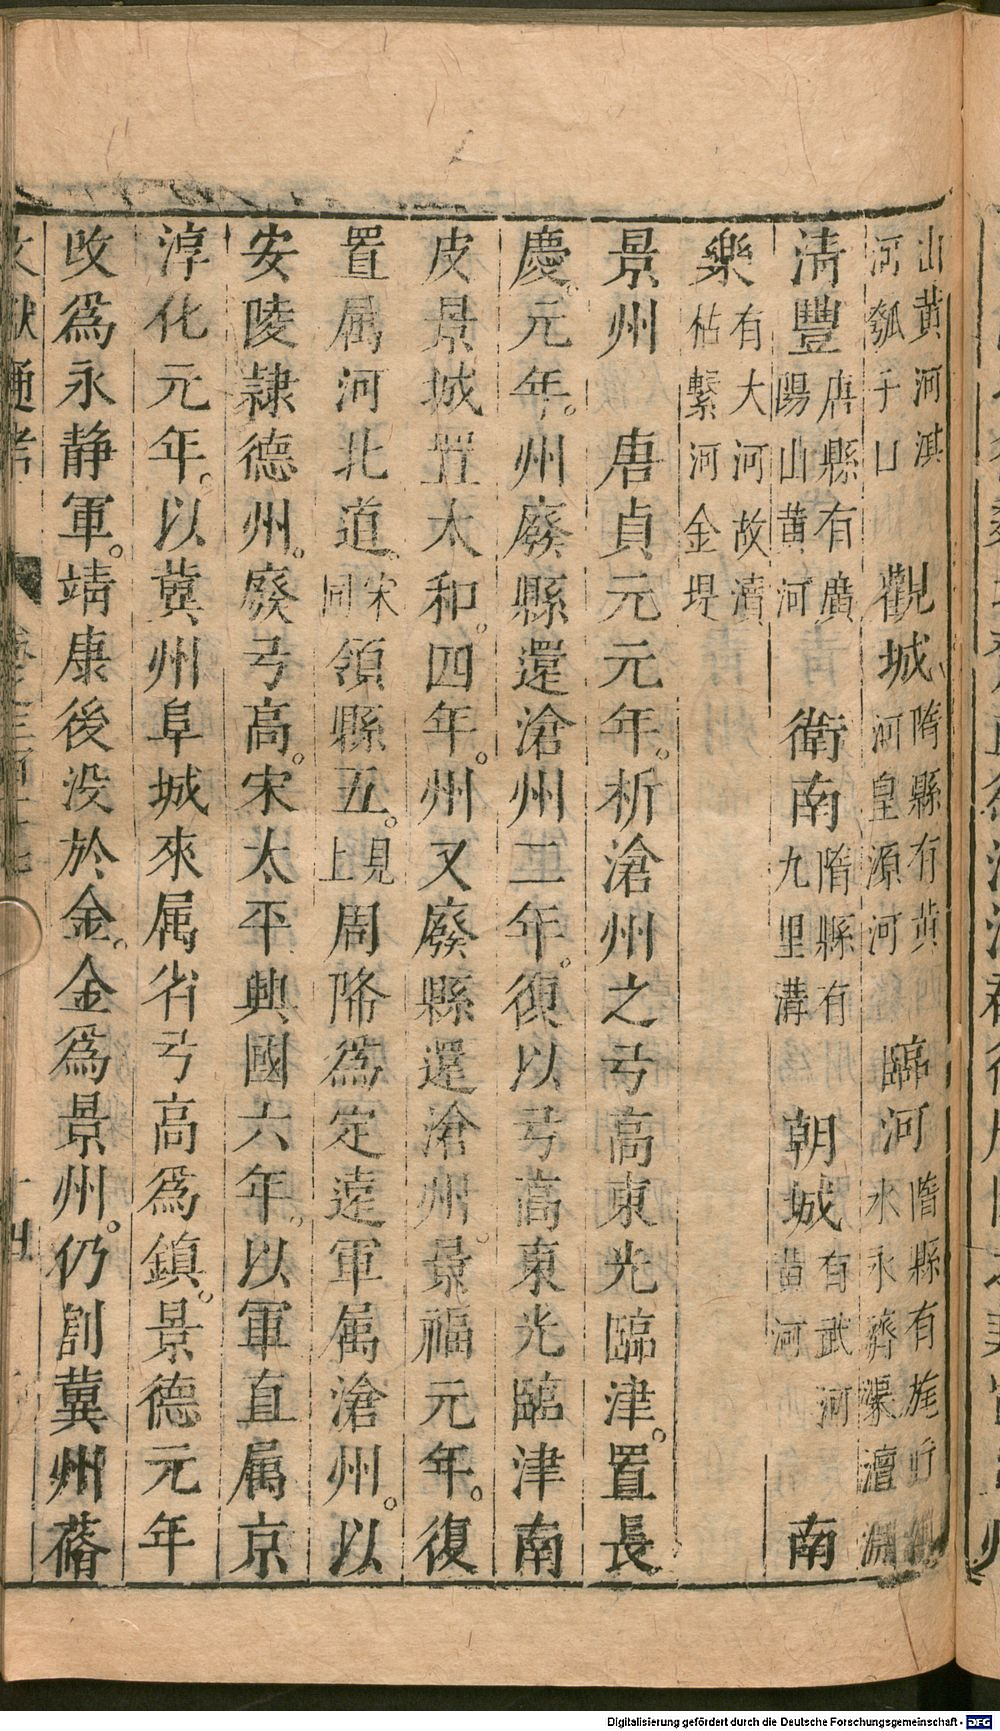 山黃河淇
河瓠子口
觀城
隋縣有黃
河皇源河
臨河
隋縣有
水永濟渠澶淵
清豐
唐縣有廣
陽山黃河
衛南
隋縣有
九里溝
朝城
有武河
黃河
南
樂
有大河故瀆
枯繫河金堤
景州 唐貞元元年。析滄州之弓高東光臨津。置長
慶。元年。州廢縣還滄州二年。復以弓高東光臨津南
皮景城置太和。四年。州又廢縣還滄州。景福元年。復
置属河北道。宋同領縣五。見上周降為定遠軍属滄州。以
安陵隷德州。廢弓高。宋太平興國六年。以軍直属京
淳化元年。以冀州阜城來属省弓高為鎮。景德元年
改為永静軍。靖康後没於金。金為景州。仍割冀州蓨
文獻通考
卷之三百十七
十四
Digitalisierung gefördert durch die Deutsche Forschungsgemeinschaft - DFG